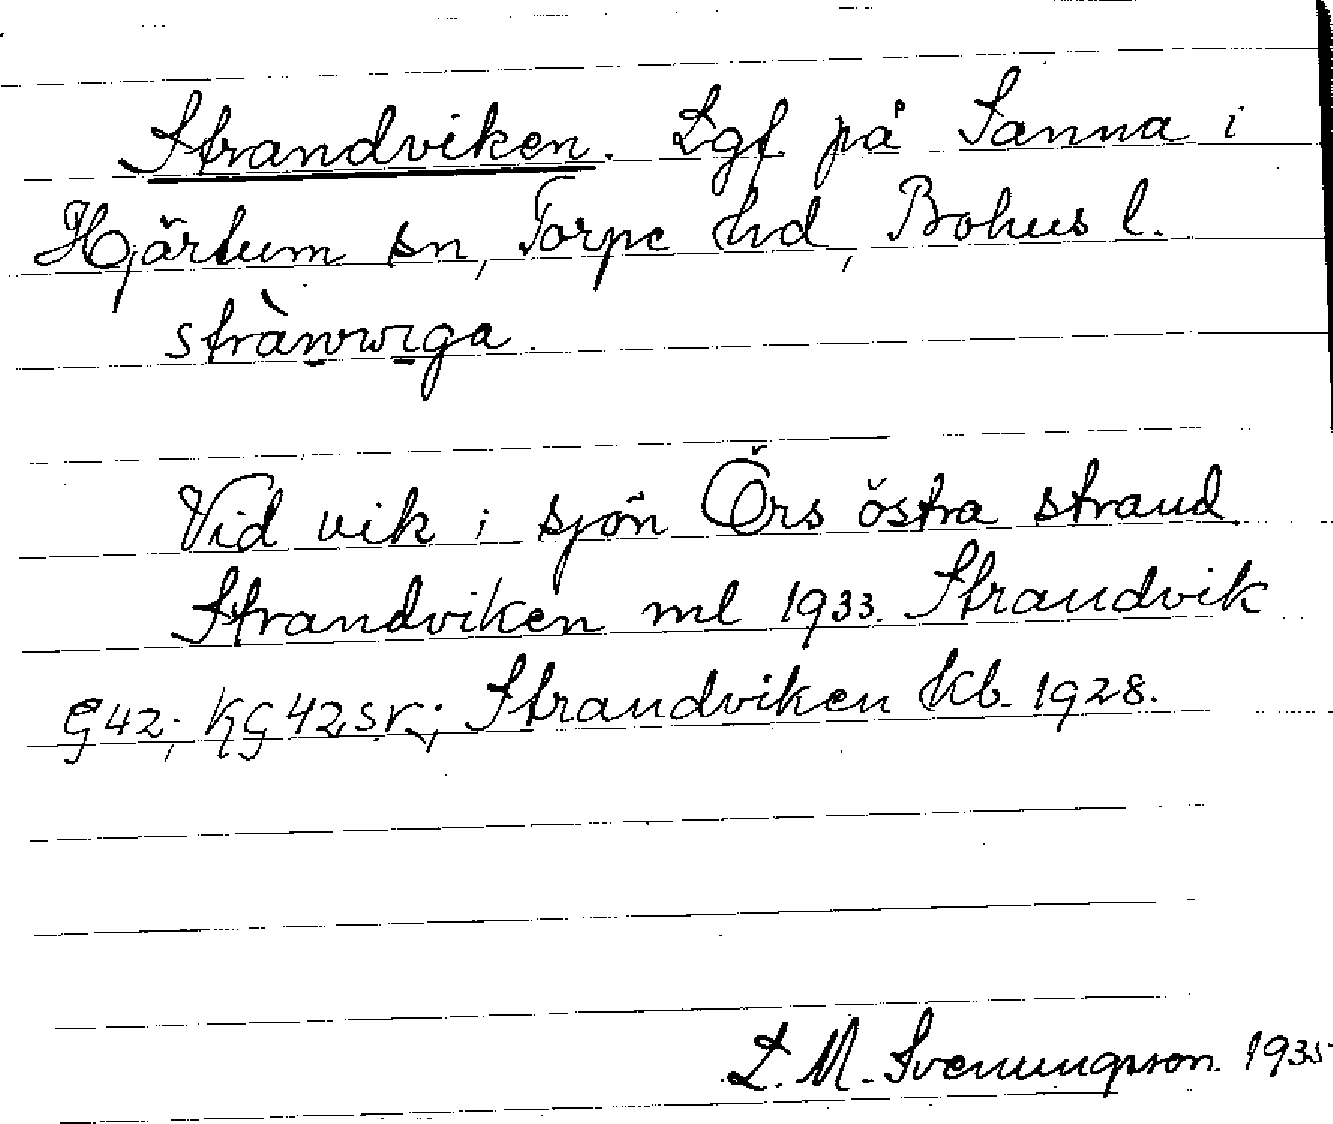 Strandviken. Lgf. på Sanna i
Hjärtum sn, Torpe hd, Bohus l.
strànvviga.
Vid vik i sjön Örs östra strand
Strandviken ml 1933. Strandvik
G42; KG 42 sv; Strandviken kb. 1928.
L. M. Svenungsson. 1935